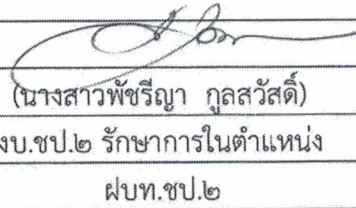 (นางสาวพัชรีญา กูลสวัสดิ์)
งบ.ชป.๒ รักษาการในตำแหน่ง
ฝบท.ชป.๒